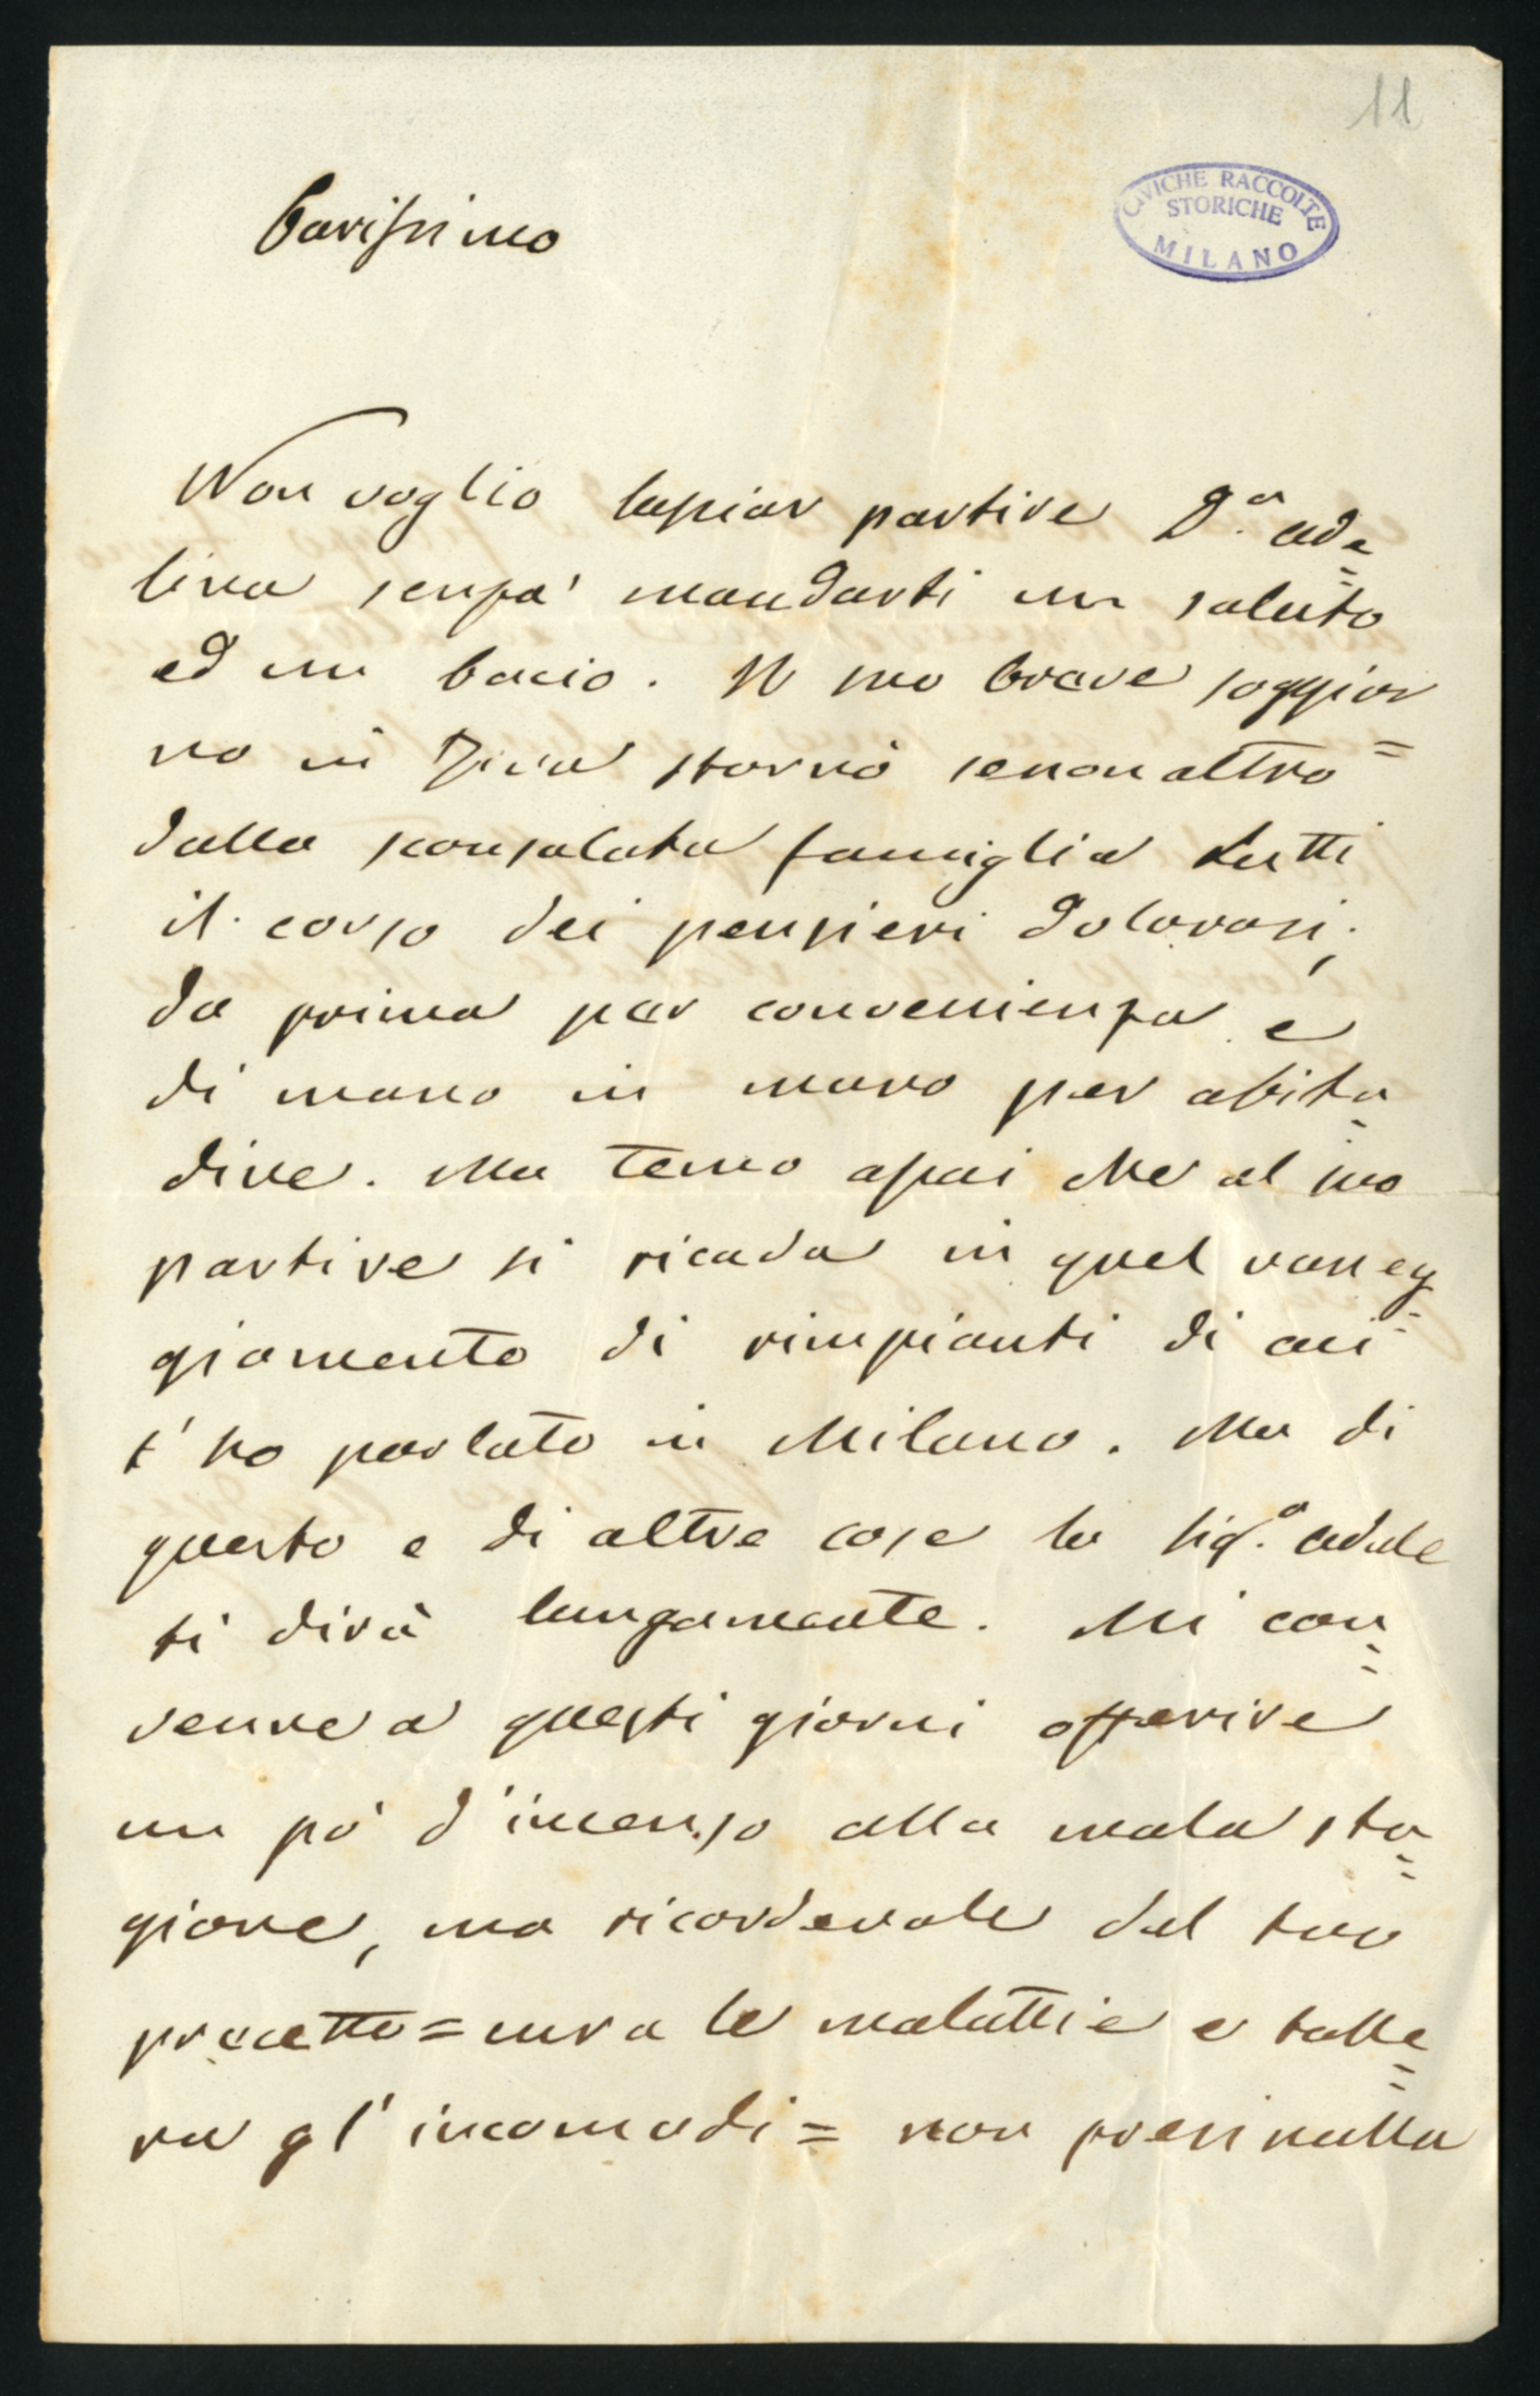 11
CIVICHE RACCOLTE
STORICHE
MILANO
Carissimo
Non voglio lassiar partire D.a Ade=
lina senza' mandarti un saluto
ed un bacio. Il suo breve soggior=
no in Pisa stornò senonaltro
dalla sconsolata famiglia tutti
il corso dei pensieri dolorosi;
da prima per convenienza e
di mano in mano per abitu=
dine. Ma temo assai che al suo
partire si ricada in quel vaneg=
giamento di rimpianti di cui
t'ho parlato in Milano. Ma di
questo e di altre cose la Sig.a Adele
ti dirà lungamente. Mi con=
venne a questi giorni offerire
un pò d'incenso alla mala sta=
gione, ma ricordevole del tuo
precetto = cura le malattie e tolle=
ra gl'incomodi = non presi nulla